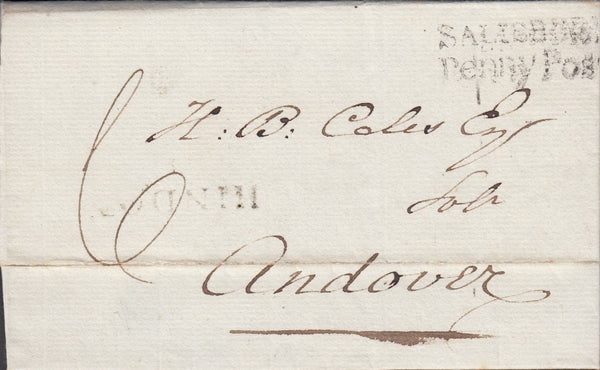 SALISBURY
Penny Post
6
H: B: Coles Esqr
Solr
Andover